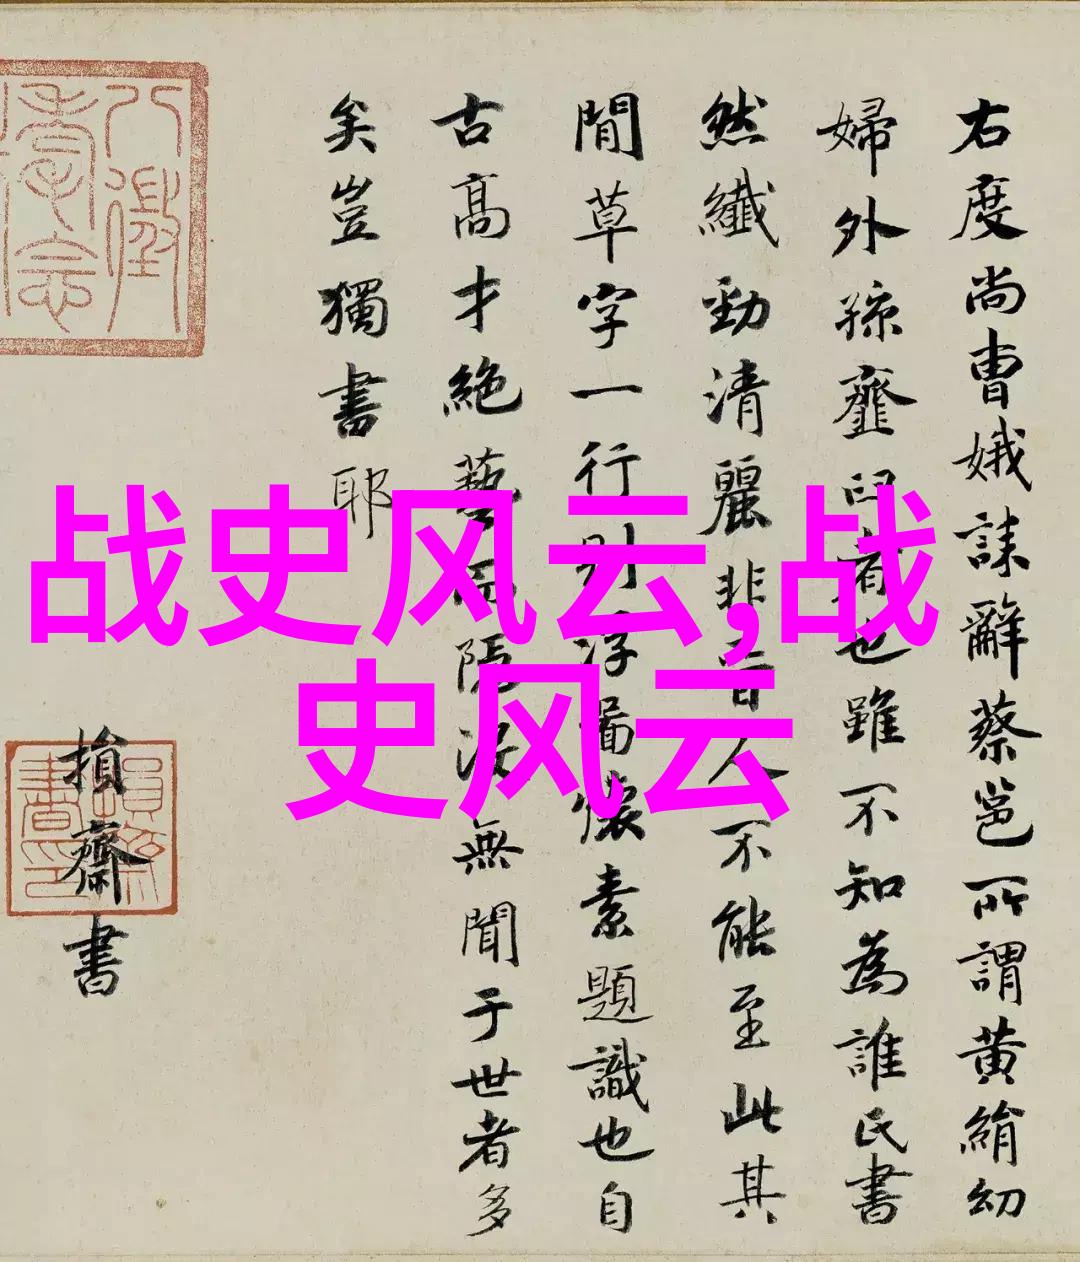 右度尚曹娥誄辭蔡邕所謂黄絹幼
婦外孫虀臼者也雖不知為誰氏書
然纖勁清麗非晉人不能至此其
閒草字一行則浮屠懷素題識也自
古高才絶藝而隐没無聞于世者多
矣豈獨書耶
損齋書
战史风云,战
史风云